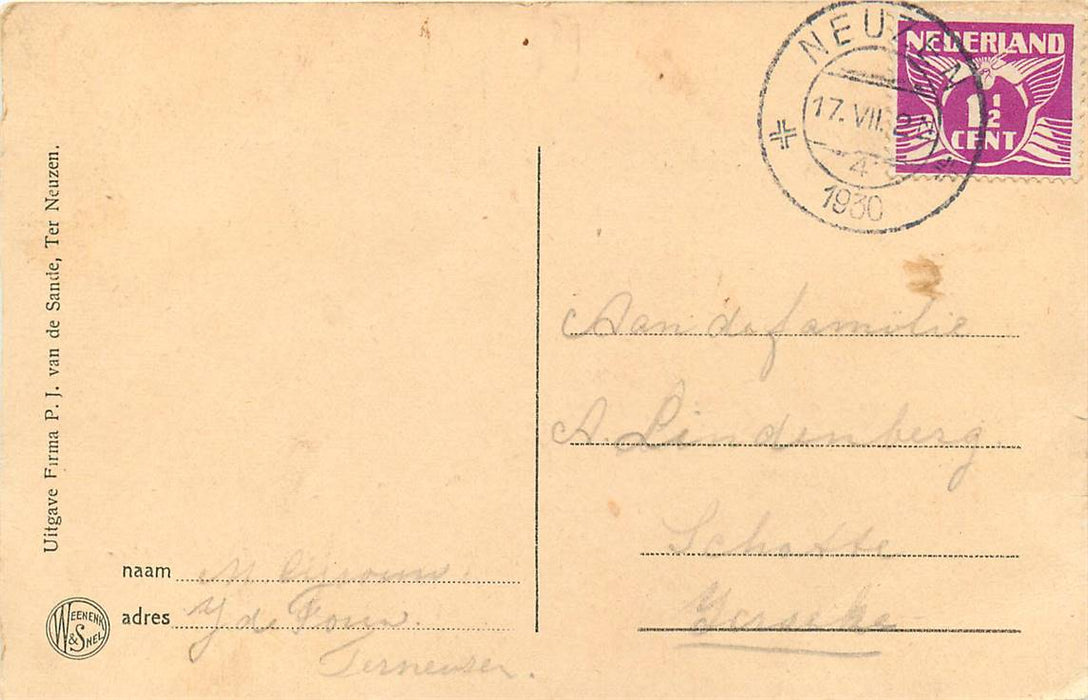 NEUZEN
17. VII. 2N
4
1930
NEDERLAND
1½
CENT
Uitgave Firma P. J. van de Sande, Ter Neuzen.
Aan de familie
A. Lindenberg
Schotte
Yerseke
naam M
adres J de
Terneuzen.
WEENENK
& SNEL